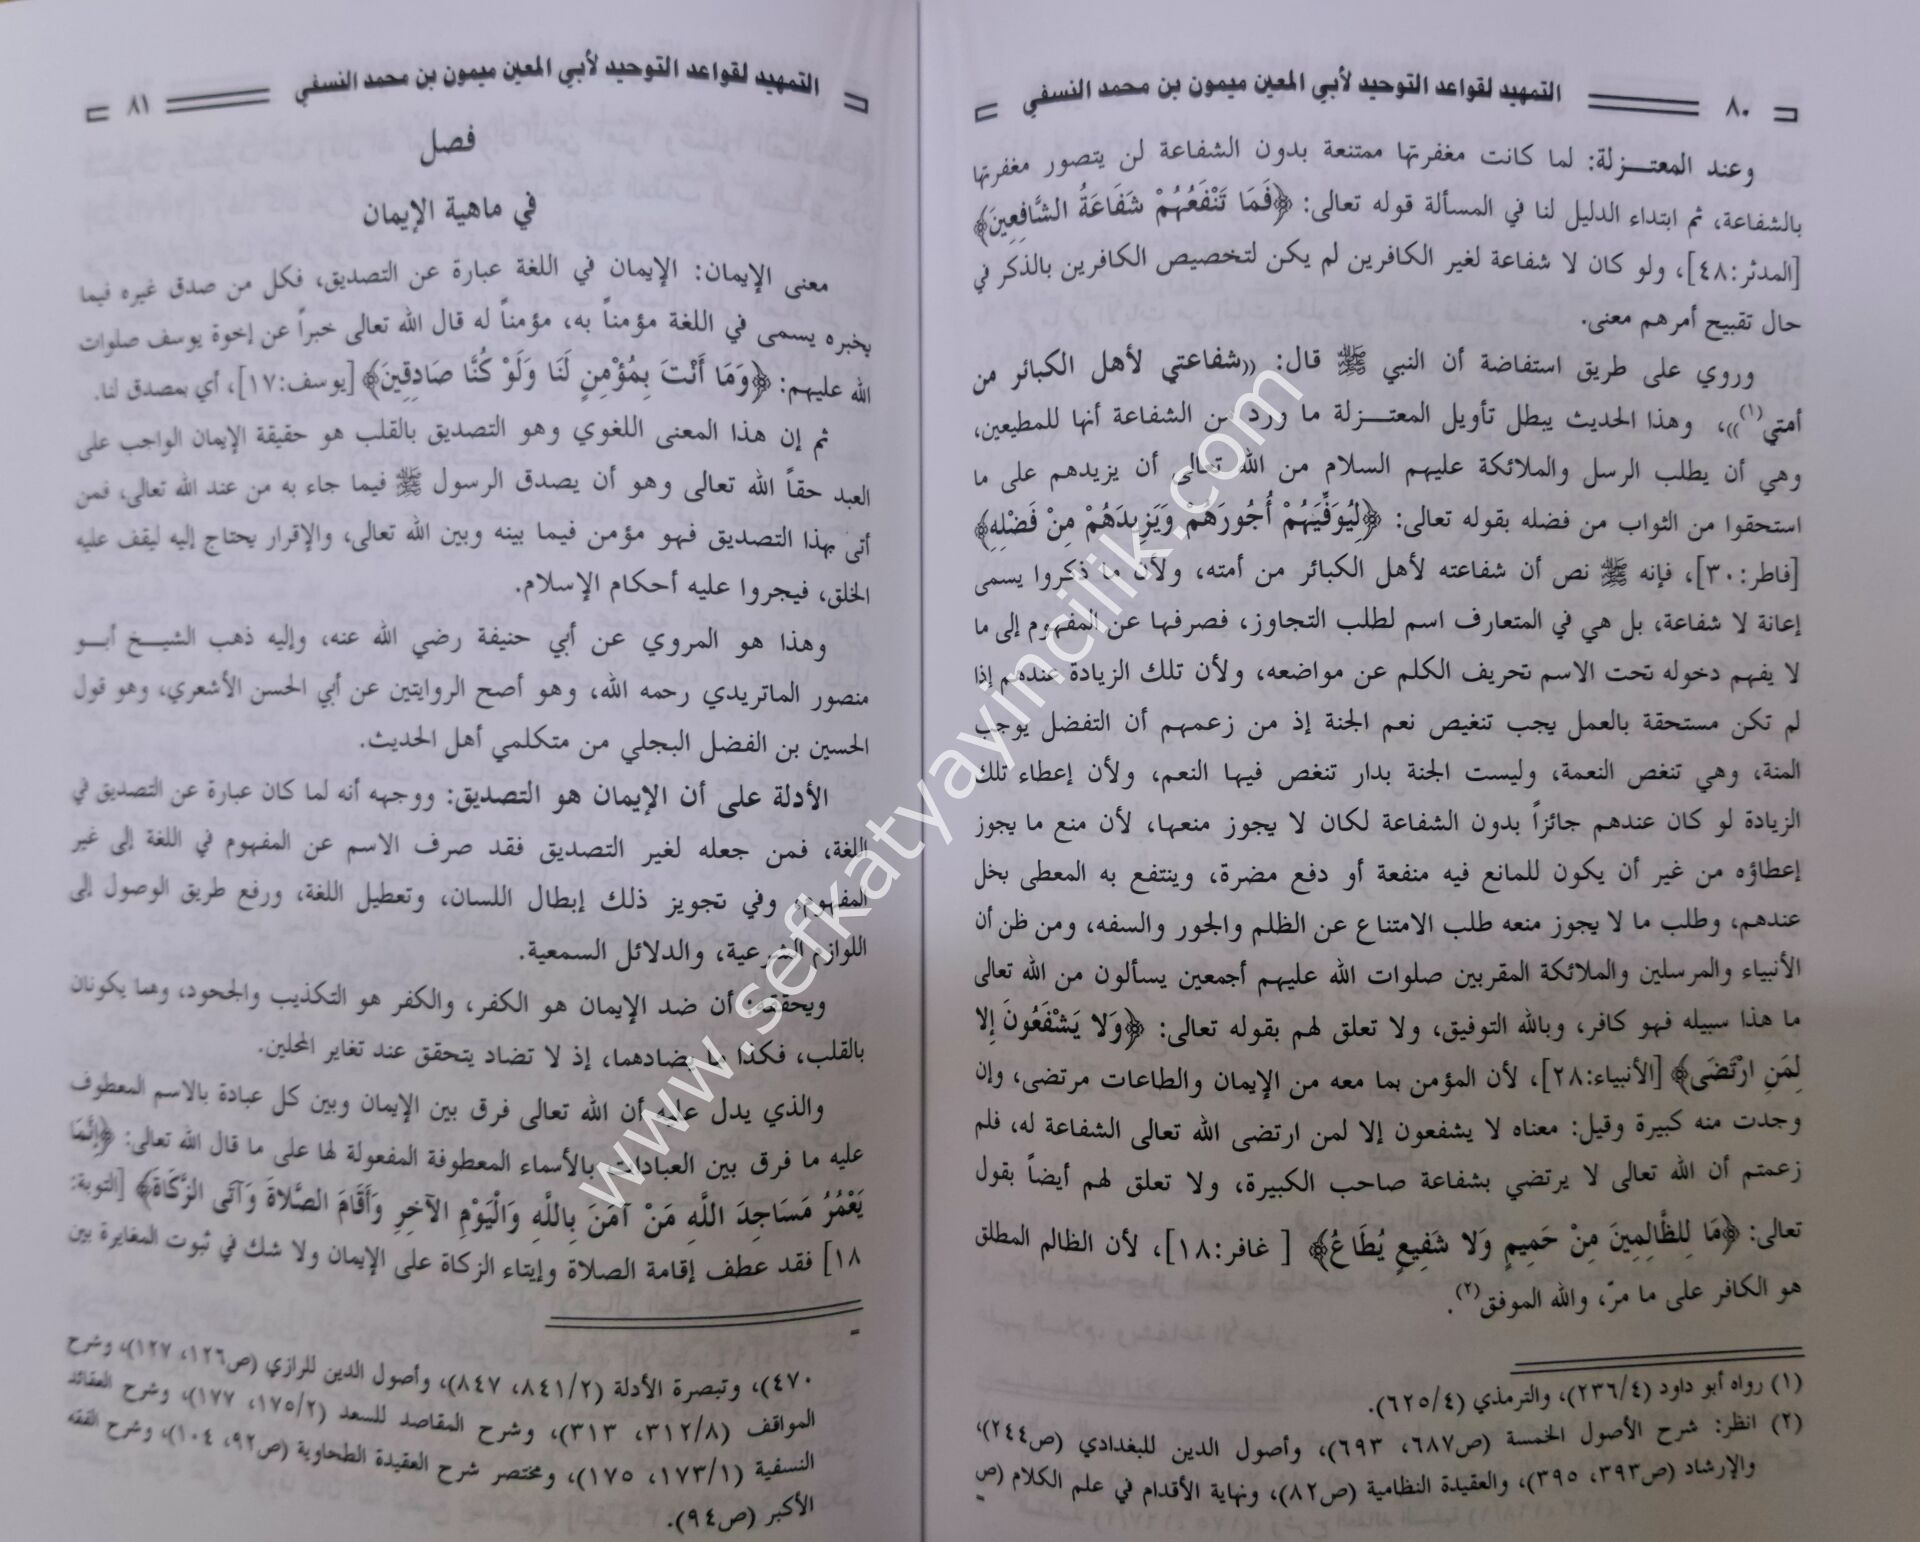 ٨٠ التمهيد لقواعد التوحيد لأبي المعين ميمون بن محمد النسفي
وعند المعتـــزلة: لما كانت مغفرتها ممتنعة بدون الشفاعة لن يتصور مغفرتها
بالشفاعة، ثم ابتداء الدليل لنا في المسألة قوله تعالى: ﴿فَمَا تَنْفَعُهُمْ شَفَاعَةُ الشَّافِعِينَ﴾
[المدثر:٤٨]، ولو كان لا شفاعة لغير الكافرين لم يكن لتخصيص الكافرين بالذكر في
حال تقبيح أمرهم معنى.
وروي على طريق استفاضة أن النبي ﷺ قال: ((شفاعتي لأهل الكبائر من
أمتي(١)))، وهذا الحديث يبطل تأويل المعتـــزلة ما ورد من الشفاعة أنها للمطيعين،
وهي أن يطلب الرسل والملائكة عليهم السلام من الله تعالى أن يزيدهم على ما
استحقوا من الثواب من فضله بقوله تعالى: ﴿لِيُوَفِّيَهُمْ أُجُورَهُمْ وَيَزِيدَهُمْ مِنْ فَضْلِهِ﴾
[فاطر:٣٠]، فإنه ﷺ نص أن شفاعته لأهل الكبائر من أمته، ولأن ما ذكروا يسمى
إعانة لا شفاعة، بل هي في المتعارف اسم لطلب التجاوز، فصرفها عن المفهوم إلى ما
لا يفهم دخوله تحت الاسم تحريف الكلم عن مواضعه، ولأن تلك الزيادة عندهم إذا
لم تكن مستحقة بالعمل يجب تنغيص نعم الجنة إذ من زعمهم أن التفضل يوجب
المنة، وهي تنغص النعمة، وليست الجنة بدار تنغص فيها النعم، ولأن إعطاء تلك
الزيادة لو كان عندهم جائزاً بدون الشفاعة لكان لا يجوز منعها، لأن منع ما يجوز
إعطاؤه من غير أن يكون للمانع فيه منفعة أو دفع مضرة، وينتفع به المعطى بخل
عندهم، وطلب ما لا يجوز منعه طلب الامتناع عن الظلم والجور والسفه، ومن ظن أن
الأنبياء والمرسلين والملائكة المقربين صلوات الله عليهم أجمعين يسألون من الله تعالى
ما هذا سبيله فهو كافر، وبالله التوفيق، ولا تعلق لهم بقوله تعالى: ﴿وَلَا يَشْفَعُونَ إِلَّا
لِمَنِ ارْتَضَى﴾ [الأنبياء:٢٨]، لأن المؤمن بما معه من الإيمان والطاعات مرتضى، وإن
وجدت منه كبيرة وقيل: معناه لا يشفعون إلا لمن ارتضى الله تعالى الشفاعة له، فلم
زعمتم أن الله تعالى لا يرتضي بشفاعة صاحب الكبيرة، ولا تعلق لهم أيضاً بقول
تعالى: ﴿مَا لِلظَّالِمِينَ مِنْ حَمِيمٍ وَلَا شَفِيعٍ يُطَاعُ﴾ [ غافر:١٨]، لأن الظالم المطلق
هو الكافر على ما مرّ، والله الموفق(٢).
(١) رواه أبو داود (٢٣٦/٤)، والترمذي (٦٢٥/٤).
(٢) انظر: شرح الأصول الخمسة (ص٦٨٧، ٦٩٣)، وأصول الدين للبغدادي (ص٢٤٤)،
والإرشاد (ص٣٩٣، ٣٩٥)، والعقيدة النظامية (ص٨٢)، ونهاية الأقدام في علم الكلام (ص
=
التمهيد لقواعد التوحيد لأبي المعين ميمون بن محمد النسفي ٨١
فصل
في ماهية الإيمان
معنى الإيمان: الإيمان في اللغة عبارة عن التصديق، فكل من صدق غيره فيما
يخبره يسمى في اللغة مؤمناً به، مؤمناً له قال الله تعالى خبراً عن إخوة يوسف صلوات
الله عليهم: ﴿وَمَا أَنْتَ بِمُؤْمِنٍ لَنَا وَلَوْ كُنَّا صَادِقِينَ﴾ [يوسف:١٧]، أي بمصدق لنا.
ثم إن هذا المعنى اللغوي وهو التصديق بالقلب هو حقيقة الإيمان الواجب على
العبد حقاً الله تعالى وهو أن يصدق الرسول ﷺ فيما جاء به من عند الله تعالى، فمن
أتى بهذا التصديق فهو مؤمن فيما بينه وبين الله تعالى، والإقرار يحتاج إليه ليقف عليه
الخلق، فيجروا عليه أحكام الإسلام.
وهذا هو المروي عن أبي حنيفة رضي الله عنه، وإليه ذهب الشيخ أبو
منصور الماتريدي رحمه الله، وهو أصح الروايتين عن أبي الحسن الأشعري، وهو قول
الحسين بن الفضل البجلي من متكلمي أهل الحديث.
الأدلة على أن الإيمان هو التصديق: ووجهه أنه لما كان عبارة عن التصديق في
اللغة، فمن جعله لغير التصديق فقد صرف الاسم عن المفهوم في اللغة إلى غير
المفهوم، وفي تجويز ذلك إبطال اللسان، وتعطيل اللغة، ورفع طريق الوصول إلى
اللوازم الشرعية، والدلائل السمعية.
ويحققه: أن ضد الإيمان هو الكفر، والكفر هو التكذيب والجحود، وهما يكونان
بالقلب، فكذا ما يضادهما، إذ لا تضاد يتحقق عند تغاير المحلين.
والذي يدل عليه أن الله تعالى فرق بين الإيمان وبين كل عبادة بالاسم المعطوف
عليه ما فرق بين العبادات بالأسماء المعطوفة المفعولة لها على ما قال الله تعالى: ﴿إِنَّمَا
يَعْمُرُ مَسَاجِدَ اللَّهِ مَنْ آمَنَ بِاللَّهِ وَالْيَوْمِ الْآخِرِ وَأَقَامَ الصَّلَاةَ وَآتَى الزَّكَاةَ﴾ [التوبة:
١٨] فقد عطف إقامة الصلاة وإيتاء الزكاة على الإيمان ولا شك في ثبوت المغايرة بين
=
٤٧٠)، وتبصرة الأدلة (٨٤١/٢، ٨٤٧)، وأصول الدين للرازي (ص١٢٦، ١٢٧)، وشرح
المواقف (٣١٢/٨، ٣١٣)، وشرح المقاصد للسعد (١٧٥/٢، ١٧٧)، وشرح العقائد
النسفية (١٧٣/١، ١٧٥)، ومختصر شرح العقيدة الطحاوية (ص٩٢، ١٠٤)، وشرح الفقه
الأكبر (ص٩٤).
www.sefkatyayincilik.com